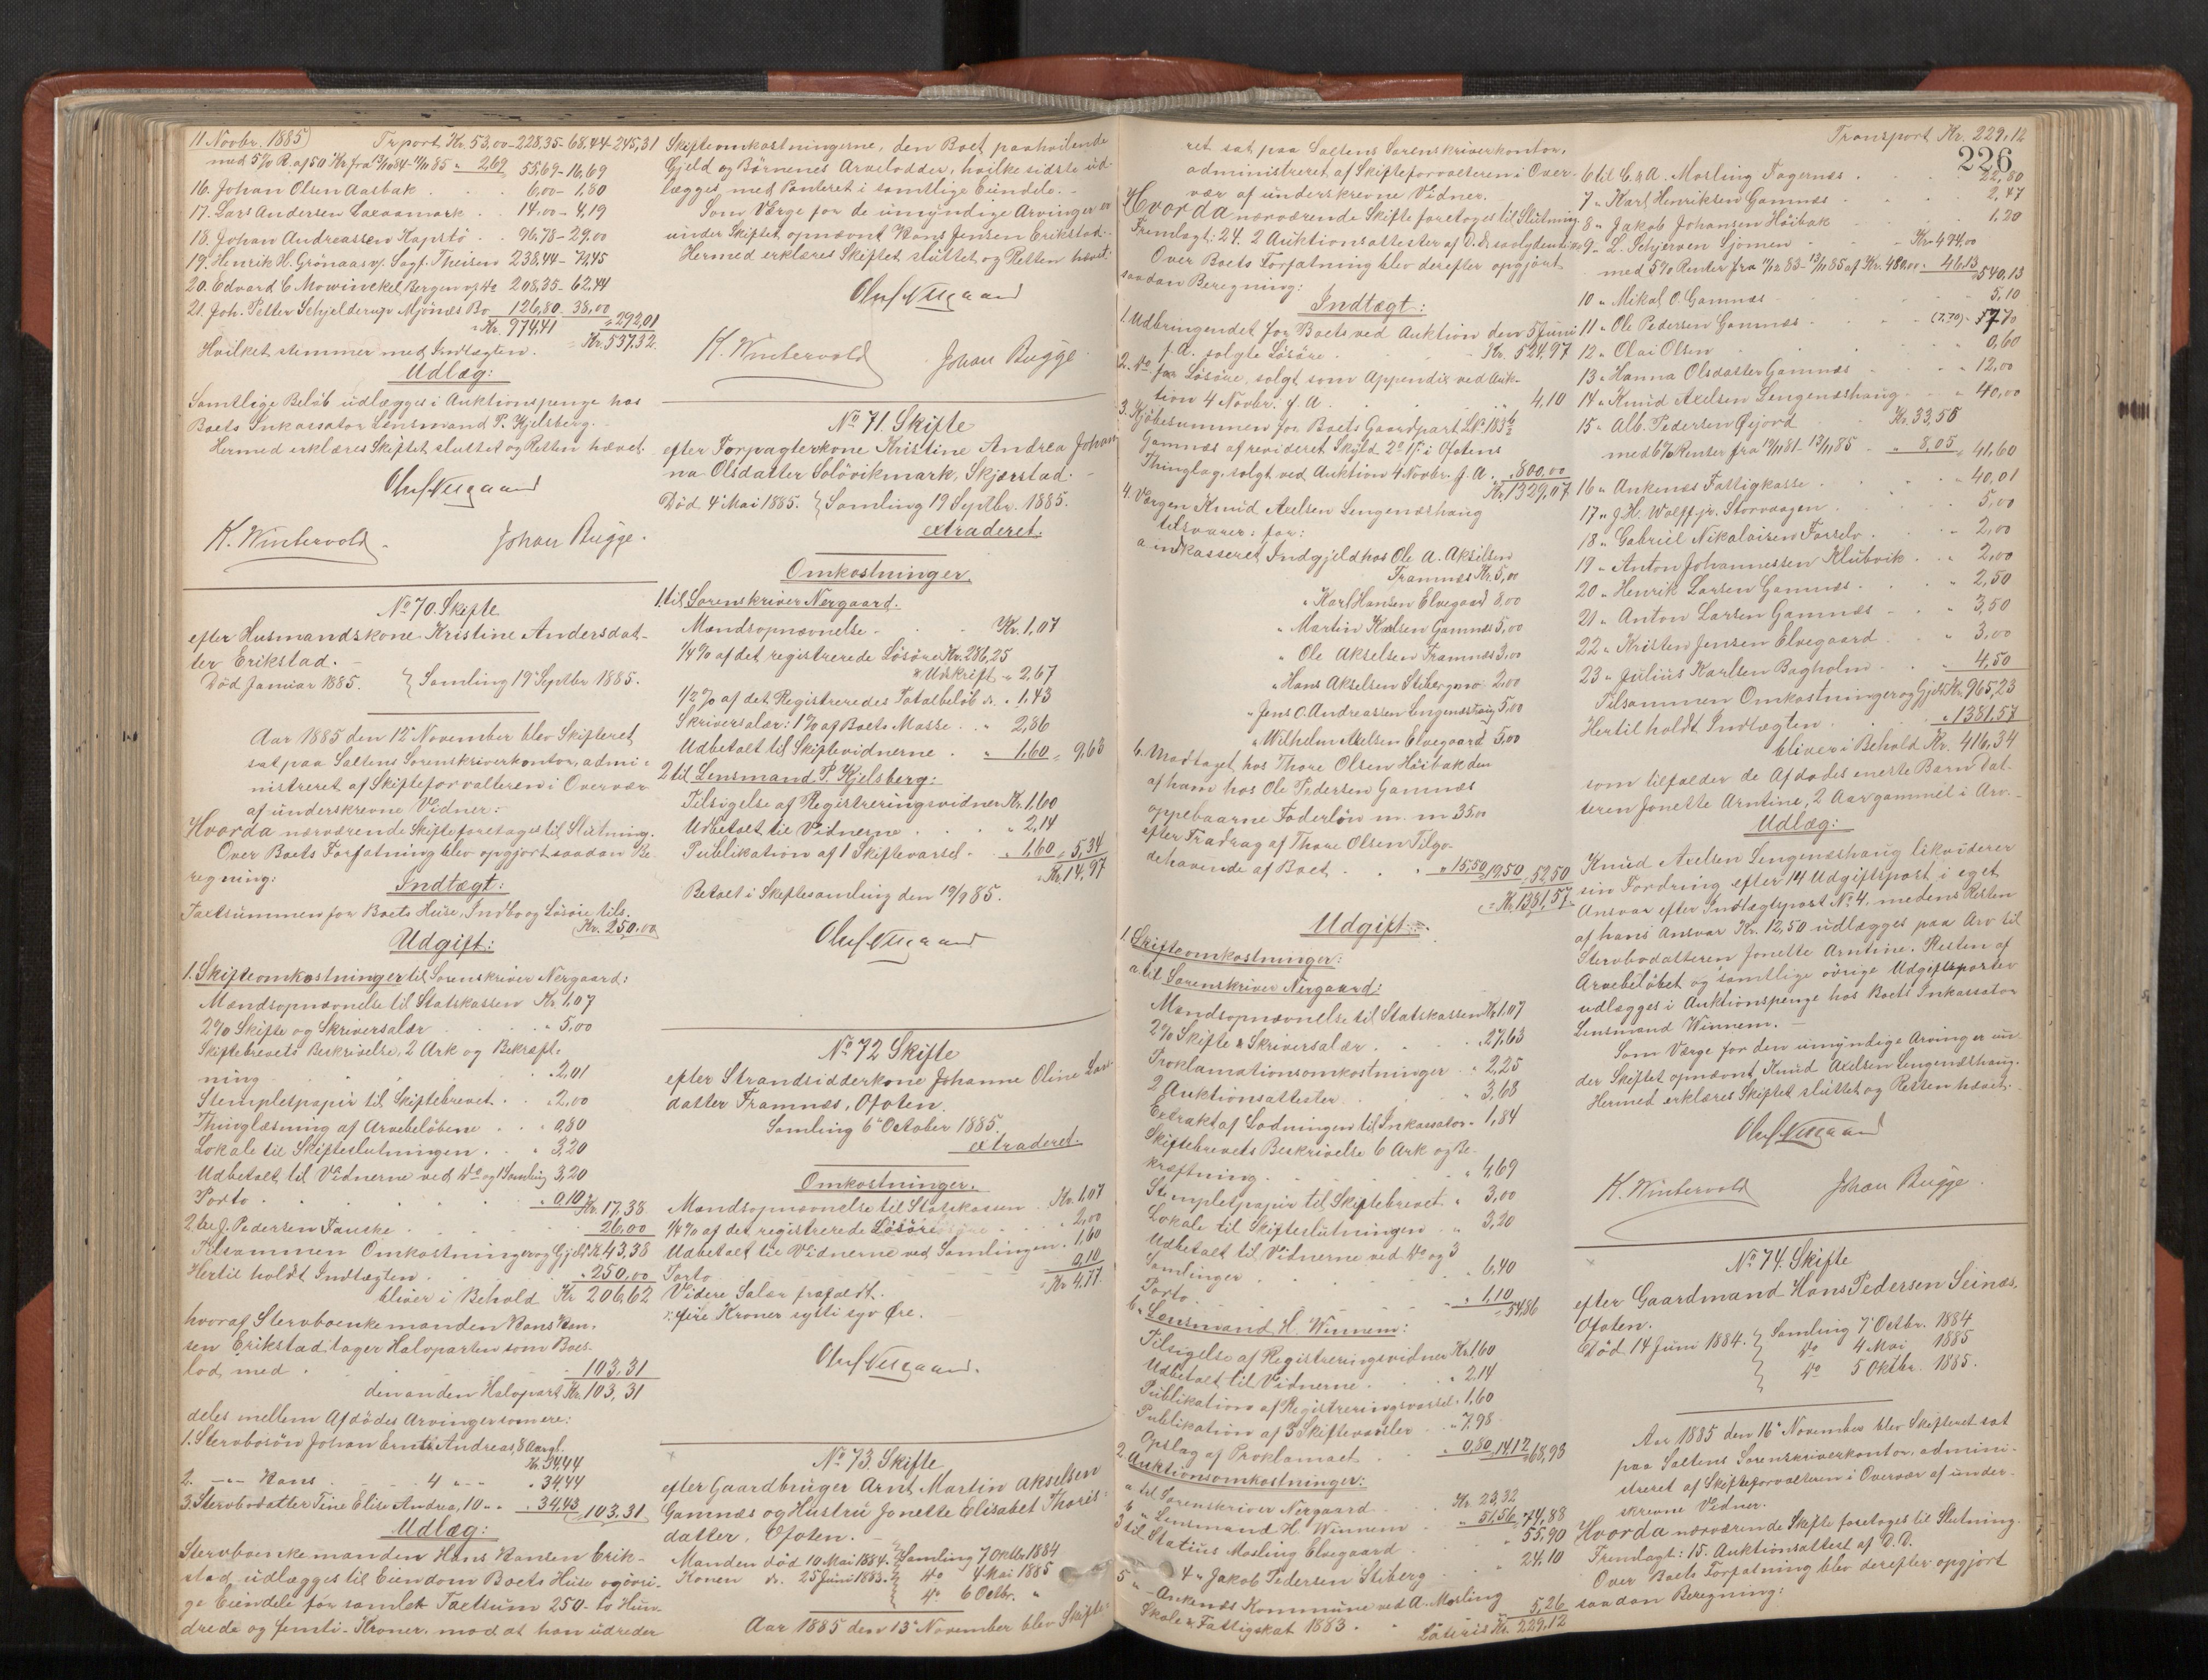 11 Novbr. 1885) Trport Kr. 53,00 - 228,35 - 68,44 - 245,31
med 5% R. af 50 Kr fra 85 " 2,69 55,69 - 16,69
16. Johan Olsen Aasbak . . 6,00 - 1,80
17. Lars Andersen . . 14,00 - 4,19
18. Johan Andreassen Kapstö . . 96,78 - 29,00
19. Henrik H. Grönaas v/ Sagf. Theisen 238,44 - 71,45
20. Edvard C Mowinckel, Bergen 208,35 - 62,44
21. Joh. Petter Schjelderup Mjönæs Bo 126,80 - 38,00
" Kr. 974,41 " 292,01
Hvilket stemmer med Indtægten. Kr. 537,32.
Udlæg:
Samtlige Beløb udlægges i Auktionspenge hos
Boets Inkassator Lensmand P. Kjelsberg.
Hermed erklæres Skiftet sluttet og Retten hævet.
Oluf Nergaard
K. Wintervold. Johan Bugge.
No 70. Skifte
efter Husmandskone Kristine Andersdat-
ter Erikstad. -
Död Januar 1885. } Samling 19 Septbr 1885.
Aar 1885 den 12 November blev Skifteret
sat paa Saltens Sorenskriverkontor, admi-
nistreret af Skifteforvalteren i Overvær
af underskrevne Vidner:
Hvorda nærværende Skifte foretoges til Slutning.
Over Boets Forfatning blev opgjort saadan Be-
regning:
Indtægt:
Taxtsummen for Boets Huse, Indbo og Lösöre tils.
Kr. 250,00
Udgift:
1. Skifteomkostninger til Sorenskriver Nergaard:
Mændsopnævnelse til Statskassen Kr 1,07
2% Skifte og Skriversalær . . " 5,00
Skiftebrevets Beskrivelse, 2 Ark og Bekræft-
ning . . . " 2,01
Stempletpapir til Skiftebrevet . . " 2,00
Thinglæsning af Arvebeløbene . . " 0,80
Lokale til Skifteslutningen . . " 3,20
Udbetalt til Vidnerne ved Do og 1 Samling 3,20
Porto . . . " 0,10 Kr. 17,38
2. til J. Pedersen Fauske . . 26,00
Tilsammen Omkostninger og Gjeld Kr 43,38
Hertil holdt Indtægten . . " 250,00
bliver i Behold Kr 206,62
hvoraf Stervboenkemanden Hans Han-
sen Erikstad tager Halvparten som Boes-
lod med . . 103,31
den anden Halvpart Kr. 103,31
deles mellem Afdödes Arvinger som ere:
1. Stervbosön Johan Ernts Andreas, 8 Aar gl.
Kr. 34,44
2. -"- Hans 4 " - " 34,44
3. Stervbodatter Tine Elise Andrea, 10 " - " 34,43 103,31
Udlæg:
Stervboenkemanden Hans Hansen Erik-
stad udlægges til Eiendom Boets Huse og övri-
ge Eiendele for samlet Taxtsum 250 - to Hun-
drede og femti - Kroner, mod at han udreder
Skifteomkostningerne, den Boet paahvilende
Gjeld og Börnenes Arvelodder, hvilke sidste ud-
lægges med Panteret i samtlige Eiendele. -
Som Værge for de umyndige Arvinger er
under Skiftet opnævnt Hans Jensen Erikstad.
Hermed erklæres Skiftet sluttet og Retten hævet.
Oluf Nergaard
K. Wintervold Johan Bugge.
No 71. Skifte
efter Forpagterkone Kristine Andrea Johan
na Olsdatter Solövikmark, Skjerstad.
Död 4 Mai 1885. } Samling 19 Septbr. 1885.
extraderet.
Omkostninger
1. til Sorenskriver Nergaard.
Mændsopnævnelse . . Kr. 1,07
1/4% af det registrerede Lösöre Kr. 286,25
+ Udskrift " 2,67
1/2% af det Registreredes Totalbeløb do. " 1,43
Skriversalær: 1% af Boets Masse . . " 2,86
Udbetalt til Skiftevidnerne . " 1,60 " 9,63
2 til Lensmand P. Kjelsberg:
Tilsigelse af Registreringsvidner Kr. 1,60
Udbetalt til Vidnerne . . . " 2,14
Publikation af 1 Skiftevarsel . " 1,60 " 5,34
" Kr. 14,97
Betalt i Skiftesamling den 19/9 85.
Oluf Nergaard
No 72 Skifte
efter Strandsidderkone Johanne Oline Lars
datter Framnæs, Ofoten.
Samling 6 October 1885.
extraderet.
Omkostninger.
Mændsopnævnelse til Statskassen . Kr. 1,07
1/4% af det registrerede Lösöre . . " 2,00
Udbetalt til Vidnerne ved Samlingen . " 1,60
Porto . . 0,10
" Kr 4,77
Videre Salær frafaldt.
: fire Kroner sytti syv Öre.
Oluf Nergaard.
No 73 Skifte
efter Gaardbruger Arnt Martin Akselsen
Gamnæs og Hustru Jonette Elisabet Thoris-
datter, Ofoten. -
Manden död 10 Mai 1884. } Samling 7 Oktbr 1884
Konen do. 25 Juni 1883. } do 4 Mai 1885
do 6 Octbr. "
Aar 1885 den 13 November blev Skifte-
226
ret sat paa Saltens Sorenskriverkontor,
administreret af Skifteforvalteren i Over-
vær af underskrevne Vidner.
Hvorda nærværende Skifte foretoges til Slutning.
Fremlagt: 24. 2 Auktionsattester af D. D.
Over Boets Forfatning blev derefter opgjort
saadan Beregning:
Indtægt:
1. Udbringendet for Boets ved Auktion den 5 Juni
f. A. solgte Lösöre . . Kr. 524,97
2. Do for Lösöre, solgt som Appendix ved Auk-
tion 4 Novbr. f. A. . . " 4,10
3. Kjöbesummen for Boets Gaardpart LNo 183
Gamnæs af revideret Skyld i Ofotens
Thinglag, solgt ved Auktion 4 Novbr. f. A. . 800,00
Kr. 1329,07
4. Værgen Knud Axelsen Lengenæshaug
tilsvarer: for:
a indkasseret Indgjeld hos Ole A. Akselsen
Framnæs Kr. 5,00
" Karl Hansen Elvegaard 8,00
" Martin Gamnæs 5,00
" Ole Akselsen Framnæs 3,00
" Hans Akselsen Stibergmo 2,00
" Jens O. Andreassen Lengenæshaug 5,00
" Wilhelm Axelsen Elvegaard 5,00
b. Modtaget hos Thore Olsen Höibak den
af ham hos Ole Pedersen Gamnæs
oppebaarne Foderlön m. m 35,00
efter Fradrag af Thore Olsen Tilgo-
dehavende af Boet . . " 15,50 19,50 52,50
" Kr. 1381,57
Udgift:
1. Skifteomkostninger:
a til Sorenskriver Nergaard:
Mændsopnævnelse til Statskassen Kr 1,07
2% Skifte & Skriversalær . . " 27,63
Proklamationsomkostninger . " 2,25
2 Auktionsattester . . " 3,68
Extrakt af Lodningen til Inkassator . " 1,84
Skiftebrevets Beskrivelse 6 Ark og Be-
kræftning . . " 4,69
Stempletpapir til Skiftebrevet . " 3,00
Lokale til Skifteslutningen . " 3,20
Udbetalt til Vidnerne ved Do og 3
Samlinger . . " 6,40
Porto . . " 1,10 54,86
b. Lensmand H. Winnem:
Tilsigelse af Registreringsvidner Kr. 1,60
Udbetalt til Vidnerne . . " 2,14
Publikation af Registreringsvarsel . 1,60
Publikation af 3 Skiftevarsler . " 7,98
Opslag af Proklamaet . . " 0,80 14,12 68,98
2 Auktionsomkostninger:
a til Sorenskriver Nergaard . Kr. 23,32
b " Lensmand H. Winnem . " 51,56 74,88
3 til Statius Mosling Elvegaard . . " 55,90
4 " Jakob Pedersen Stiberg . . " 24,10
5 " Ankenæs Kommune ved A. Mosling
Skole & Fattigskat 1883 . . 5,26
Lateris Kr. 229,12
Transport Kr. 229,12
6 til C. & A. Mosling Fagernæs . . 22,80
7 " Karl Henriksen Gamnæs . . . 2,47
8 " Jakob Johansen Höibak . . 1,20
9 - L. Schjerven Sjomen . . Kr 494,00
med 5% Renter fra 83 - 13/11 85 af Kr. 480,00 . 46,13 540,13
10 " Mikal O. Gamnæs . . 5,10
11 " Ole Pedersen Gamnæs . . (7.70) - 7,70
12 " Olai Olsen . . 0,60
13 " Hanna Olsdatter Gamnæs . . " 12,00
14 " Knud Axelsen Lengenæshaug . . " 40,00
15 " Alb. Pedersen Öijord . . Kr. 33,55
med 6% Renter fra 81 - 13/11 85 . " 8,05 " 41,60
16 " Ankenæs Fattigkasse . . 40,01
17 " J. H. Wolff jr. Storvaagen . . 5,00
18 " Gabriel Nikolaisen Forselv . . " 2,00
19 " Anton Johannessen Klubvik . . " 2,00
20 " Henrik Larsen Gamnæs . . " 2,50
21 " Anton Larsen Gamnæs . . " 3,50
22 " Kristen Jensen Elvegaard . " 3,00
23 " Julius Karlsen Bagholm . . " 4,50
Tilsammen Omkostninger og Gjeld Kr. 965,23
Hertil holdt Indtægten . . " 1381,57
bliver i Behold Kr. 416,34
som tilfalder de Afdödes eneste Barn Dat-
teren Jonette Arntine, 2 Aar gammel i Arv. -
Udlæg:
Knud Axelsen Lengenæshaug likviderer
sin Fordring efter 14 Udgiftspost i eget
Ansvar efter Indtægtspost No 4, medens Resten
af hans Ansvar Kr. 12,50 udlægges paa Arv til
Stervbodatteren Jonette Arntine. Resten af
Arvebeløbet og samtlige övrige Udgiftsposter
udlægges i Auktionspenge hos Boets Inkassator
Lensmand Winnem. -
Som Værge for den umyndige Arvinger un-
der Skiftet opnævnt Knud Axelsen Lengenæshaug.
Hermed erklæres Skiftet sluttet og Retten hævet.
Oluf Nergaard
K. Wintervold Johan Bugge.
No 74. Skifte
efter Gaardmand Hans Pedersen Seinæs,
Ofoten.
Död 14 Juni 1884. } Samling 7 Octbr. 1884
do 4 Mai 1885
do 5 Oktbr. 1885.
Aar 1885 den 16 November blev Skifteret sat
paa Saltens Sorenskriverkontor, admini-
streret af Skifteforvalteren i Overvær af under-
skrevne Vidner.
Hvorda nærværende Skifte foretoges til Slutning.
Fremlagt: 15. Auktionsattest af D. D.
Over Boets Forfatning blev derefter opgjort
saadan Beregning: